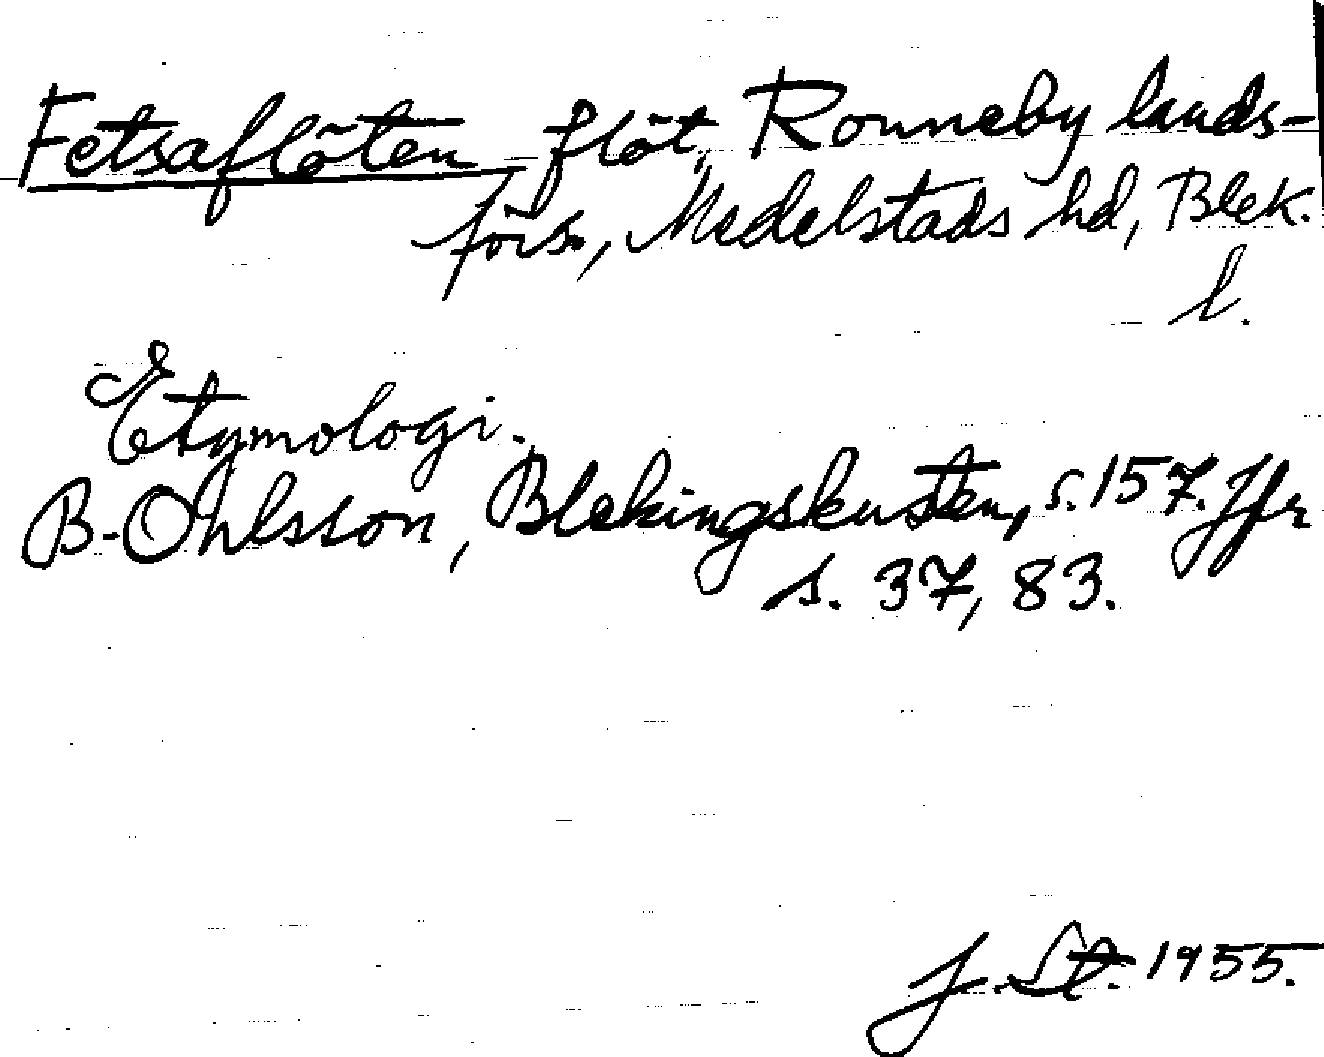 Fetsaflöten flöt, Ronneby lands-
förs., Medelstads hd, Blek.
l.
Etymologi.
B. Ohlsson, Blekingskusten, s. 157. Jfr
s. 37, 83.
J. St. 1955.